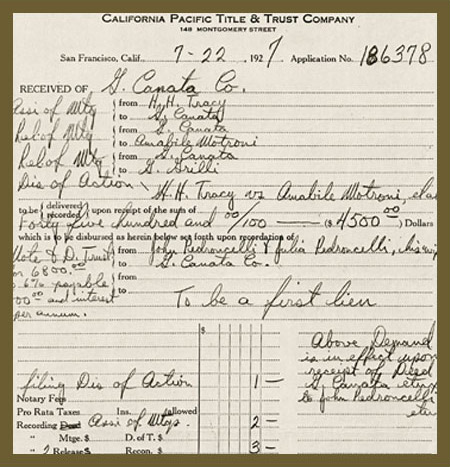 CALIFORNIA PACIFIC TITLE & TRUST COMPANY
148 MONTGOMERY STREET
San Francisco, Calif., 7-22 1927 Application No. 186378
RECEIVED OF G. Canata Co.
Assi of Mtg from H. H. Tracy
to G. Canata
Rel of Mtg from G. Canata
to Amabile Motroni
Rel of Mtg from G. Canata
to G. Grilli
Dis of Action H. H. Tracy vs Amabile Motroni, etal
to be (delivered / recorded) upon receipt of the sum of
Forty five hundred and 00/100 — ($ 4500 00) Dollars
which is to be disbursed as herein below set forth upon recordation of
Note & D. Trust from John Pedroncelli & Julia Pedroncelli, his
or 6800.00 to G. Canata Co.
6% payable from
00 and interest to To be a first lien
per annum.
$
Above Demand
is in effect upon
receipt of Deed
G. Canata etux
to John Pedroncelli
etux
filing Dis of Action 1 —
Notary Fees
Pro Rata Taxes Ins. allowed
Recording Deed Assi of Mtgs. 2 —
" Mtge. $ D. of T. $
" 2 Release $ Recon. $ 3 —